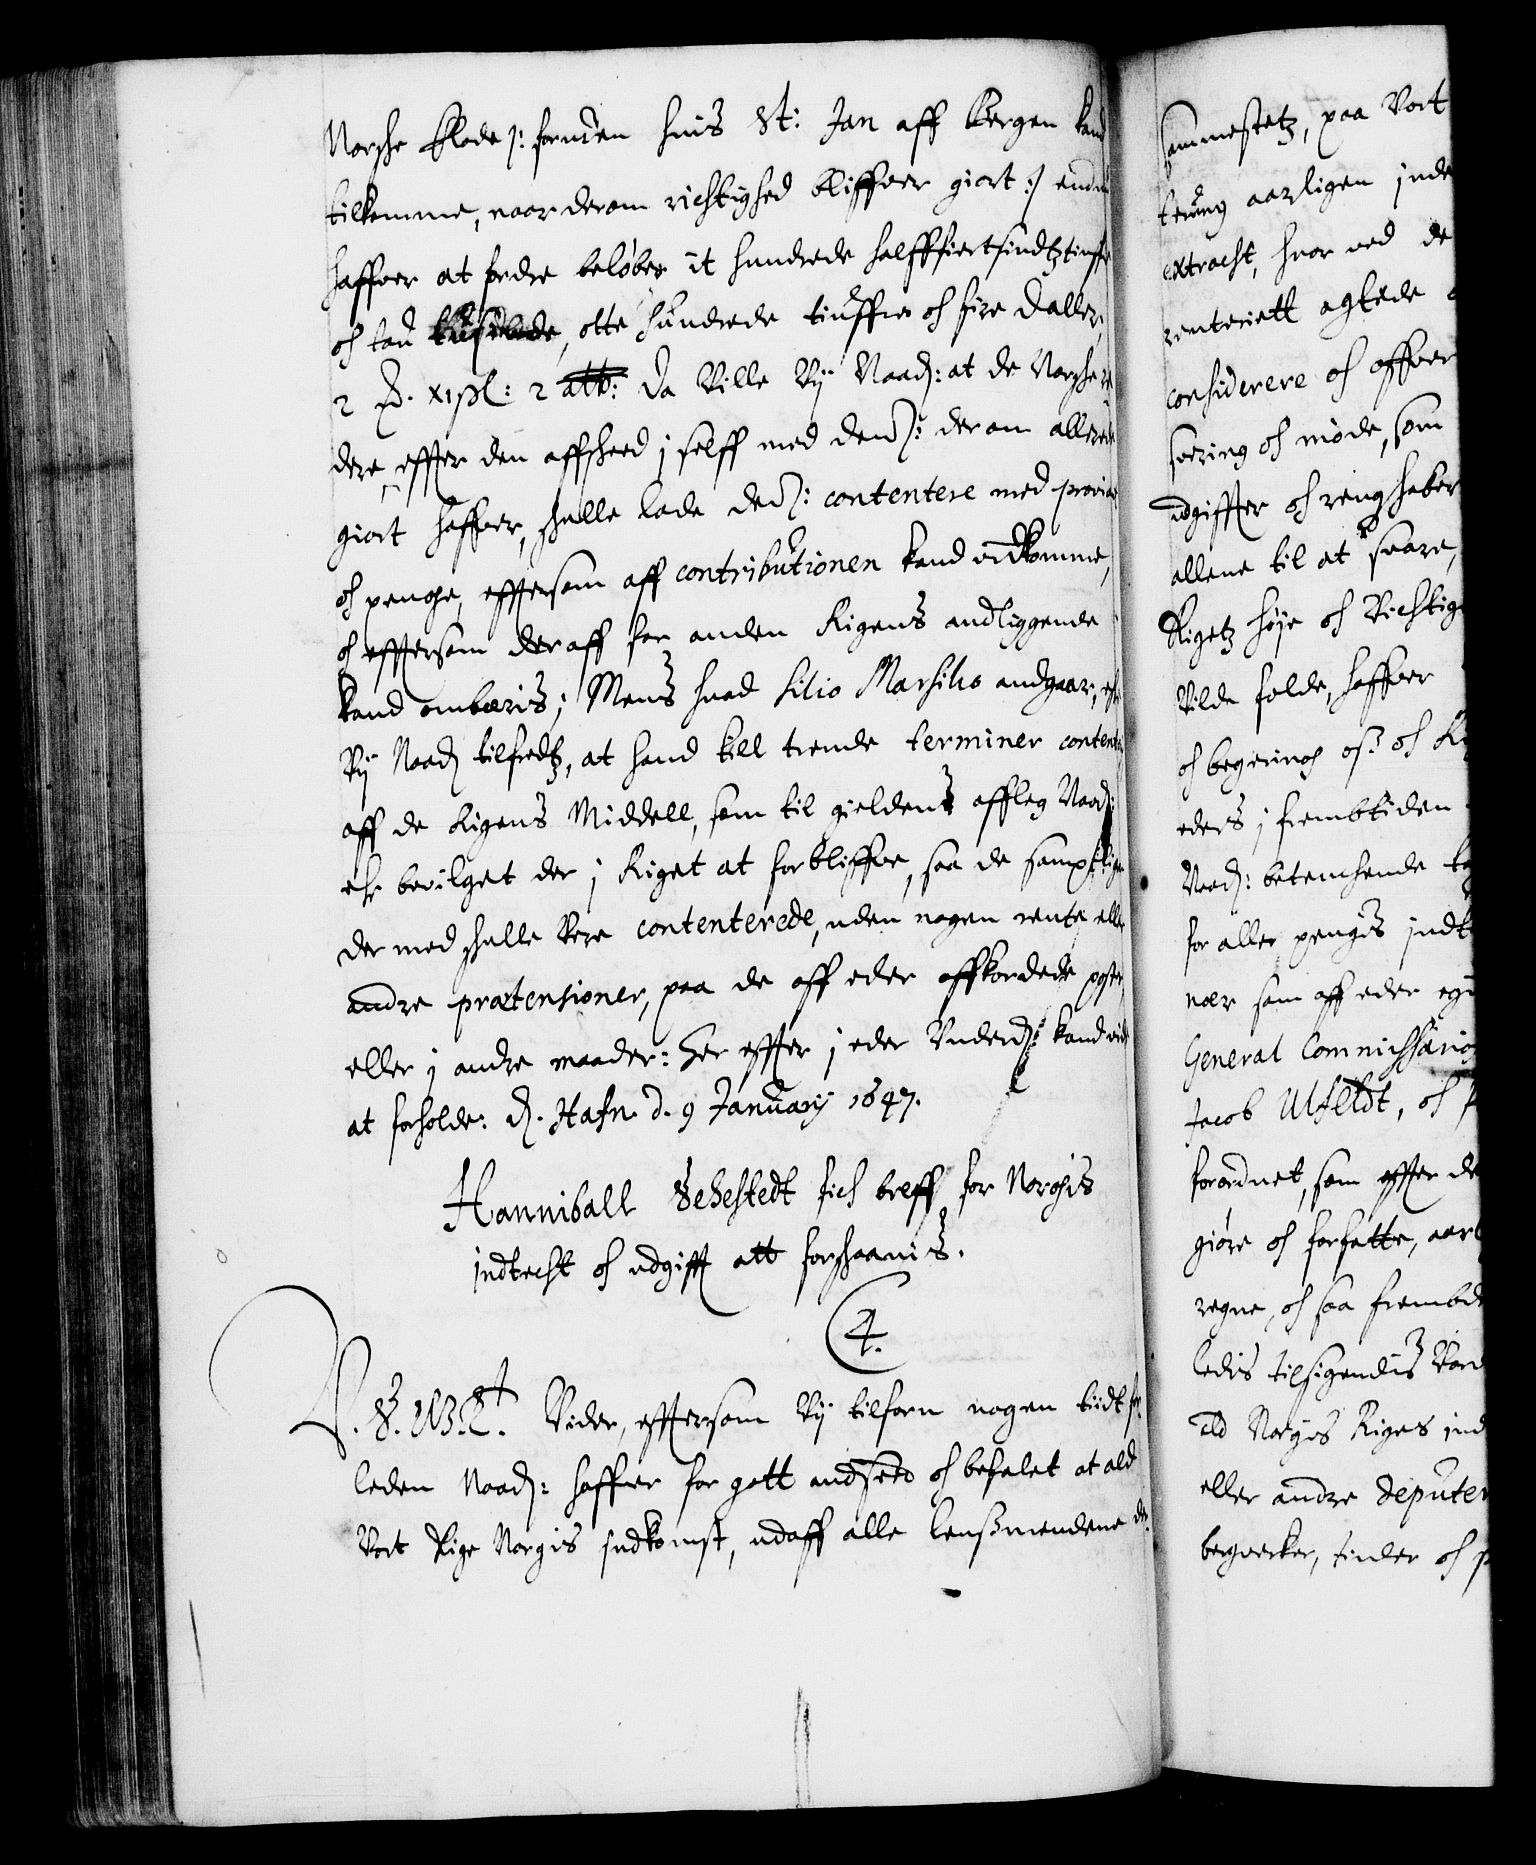 Norske Flode /: foruden huis St: Jan aff Bergen kand
tilkomme, naar derom richtighed bliffver giort :/ endnu
haffver at fordre beløber it hundrede halfffiertsindtztiuffve
och tou tusinde, otte hundrede tiuffve och fire daller,
2 xii sl: 2 alb: da Ville Vij Naad: at de Norske
dere, effter den affskeed i selff med dennem: derom allerede
giort haffver, skulle lade dennem: contentere med proviant
och penge, efftersom aff contributionen kand indkomme,
och efftersom deraff for anden Rigens andliggende
kand ombæris; Mens huad Silio Marsilio andgaar, ehr
Vij Naad tilfredtz, at hand till trende terminer contenteris
aff de Rigens Middell, som til gieldens affleg Naad:
ehr bevilget der i Riget at forbliffve, saa de samptligen
der med skulle Vere contenterede, uden nogen rente eller
andre prætensioner, paa de aff eder affkordede poster,
eller i andre maader: Her effter i eder Underd: kand vide
at forholde: D. Hafn. d. 9 January 1647.
Hanniball Sehestedt fick breff for Norgis
indtecht och udgifft att forskaanis.
4.
V. S. G. T. Vider, efftersom Vij tilforn nogen tiidt for-
leden Naad: haffver for gott andseed och befalet at ald
Vort Rige Norgis Indkomst, udaff alle lensmendene der
sammestetz, paa Vort
tering aarligen inde
extracht, huor ved de
renteriett agtede
considerere och offver
svering och møde, som
udgiffter och rengskaber
allene til at svare,
Rigetz høje och Vichtige
Vilde falde, haffver
och begering os: och
eders i frembtiden
Naad: betenchende
for aller pengis indt
nær som aff eder
General Commissario
Jacob Ulfeldt, och
forordnet, som effter de
giøre och forfatte, aarl
regne, och saa frembde
ledis tilsigendis Vorde
ald Norgis Riges ind
eller andre deputer
bergverker, tinder och